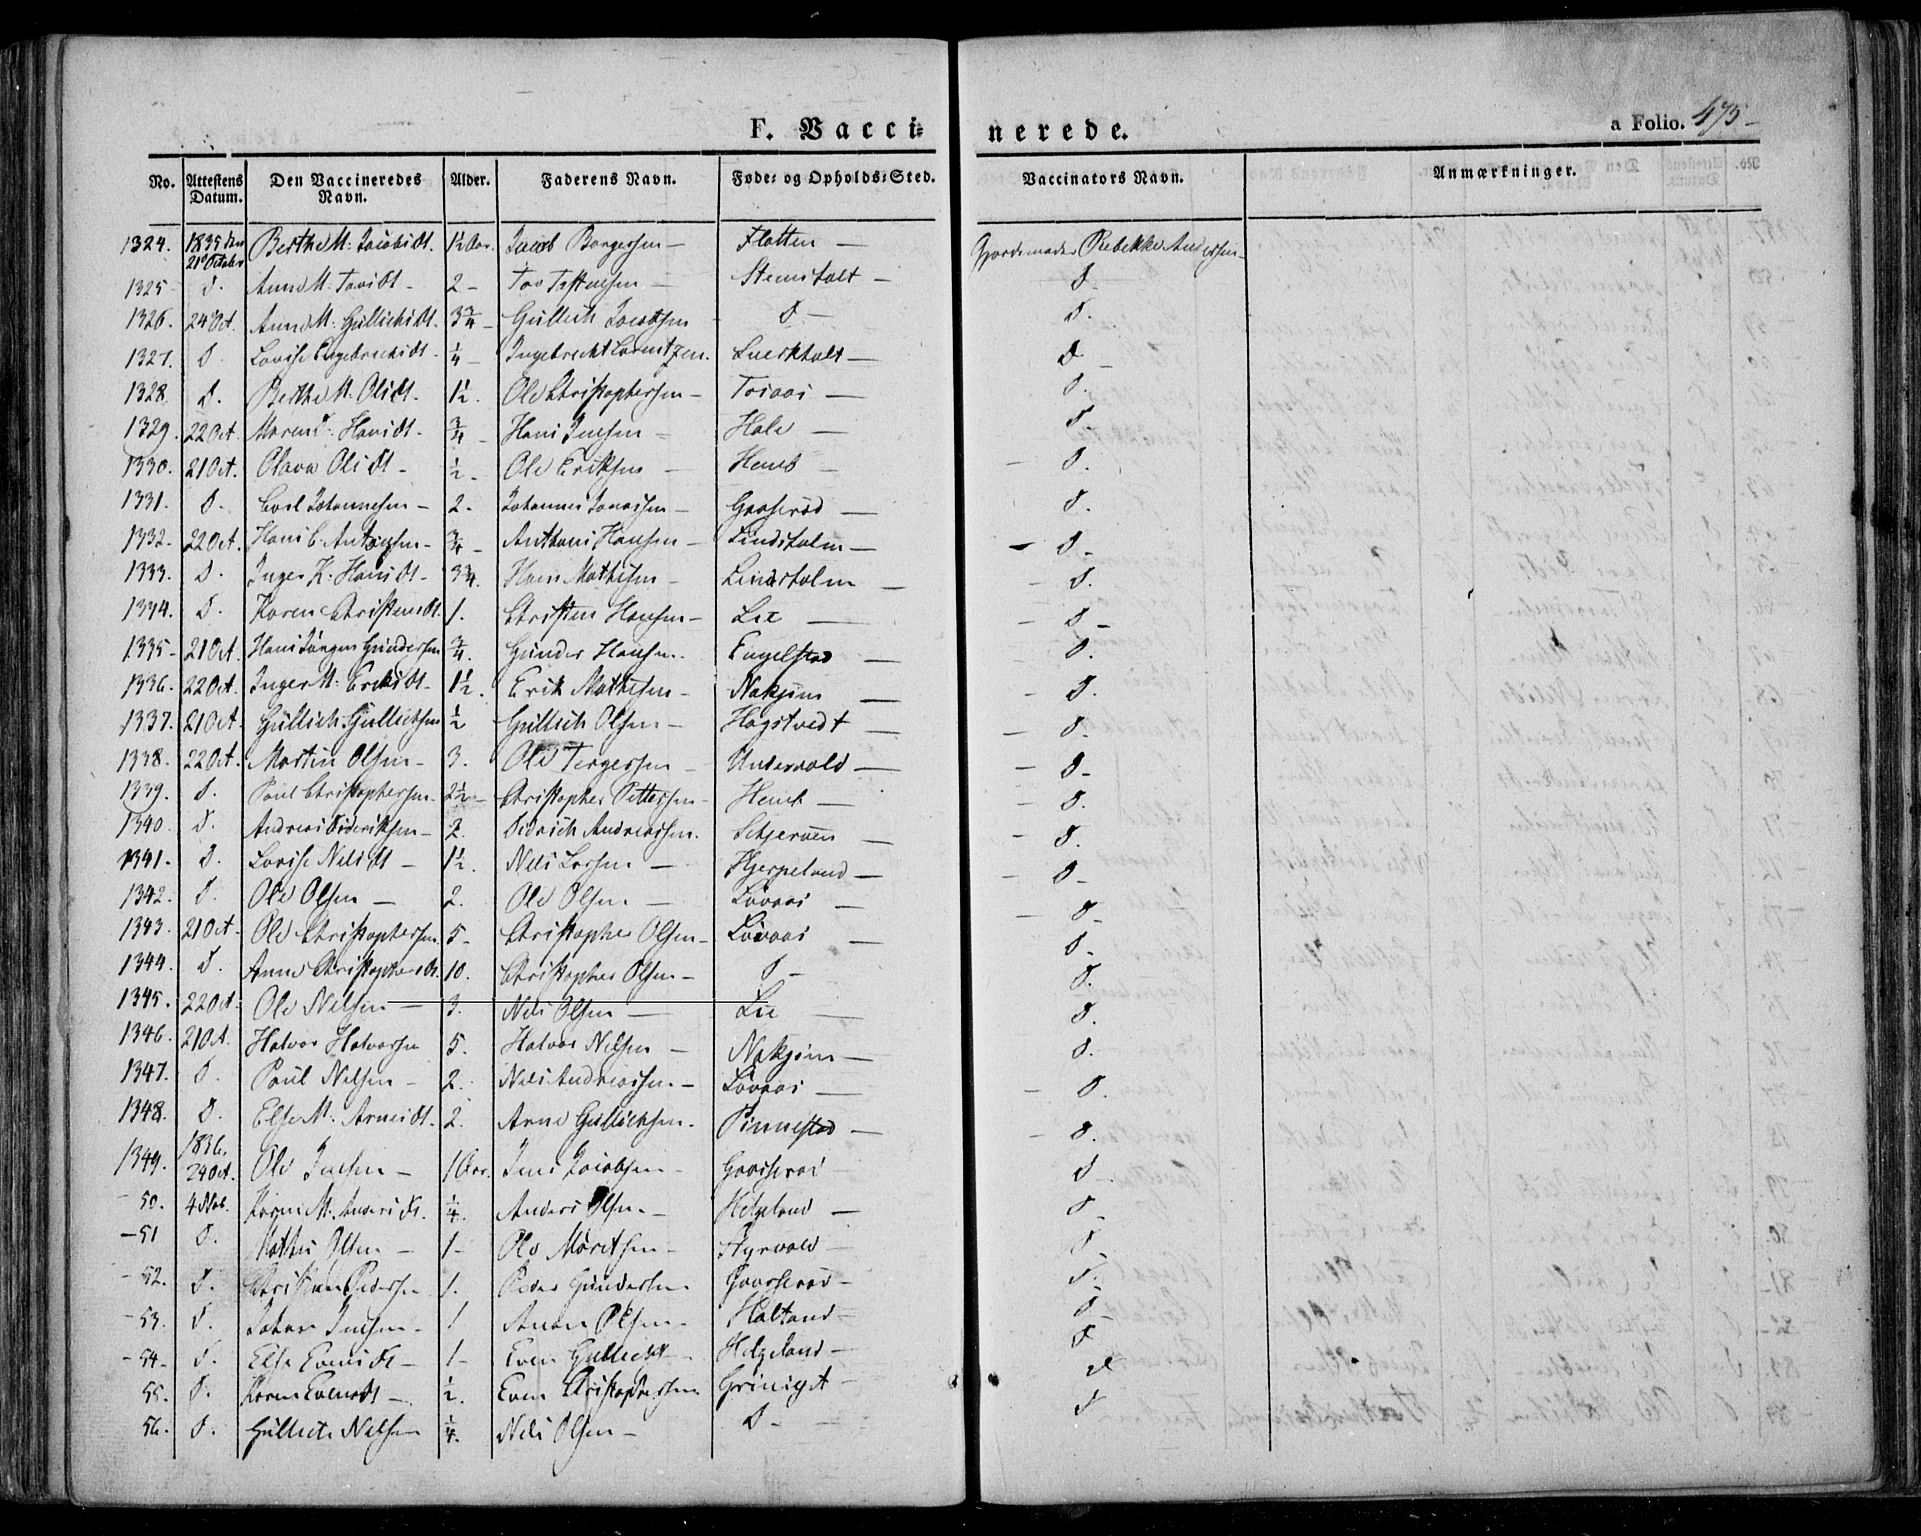 F. Vacci⸗ nerede. a Folio. 475
No. Attestens Datum. Den Vaccineredes Navn. Alder. Faderens Navn. Føde⸗ og Opholds⸗Sted. Vaccinators Navn. Anmærkninger.
1324. 1835 den 21de October Berthe M: Jacobsdt. 1½ Aar. Jacob Borgersen — Flatten — Gjordemoder Rebekke Anderssen
1325 D. Anne M. Tovsdt — 2 — Tov — D.
1326. 24 Oct. Anne M: Gullichsdt. 3¾ — Gullich Jacobsen D. — D.
1327. D. Lovise Engebrechtsdt. ¼ — Ingebrecht — D
1328. D. Berthe M. Olsdt. 1½. Ole Christophersen — D.
1329. 22 Oct. Maren Hansdt. ¾ — Hans Jensen — D.
1330. 21 Oct. Olava Olsdt — ½ — Ole Eriksen — — D.
1331. D. Carl Johannesen — 2. Johannes Jonassen — Gaaserød — D.
1332. 22 Oct. Hans C. ¾ — Anthoni Hansen — Lindsholm — D —
1333. D. Inger K. Hansdt — 3¾. Hans Mathisen — Lindsholm — D.
1334. D. Karen Christensdt. 1. Christen Hansen — Lie — D —
1335 — 21 Oct. Hans Jörgen Gundersen ¾. Gunder Hansen. Engelstad — D.
1336. 22 Oct. Inger M: Eriksdt — 1½. Erik Mathisen — Nakjim — D.
1337. 21 Oct. Gullich Gullichsen ½ Gullich Olsen — Hogstvedt — D.
1338. 22 Oct. Martin Olsen — 3. Ole Tergersen — Undervold — D —
1339. D. Paul Christophersen — 2½ — Christopher Pettersen — — D.
1340. D. Andreas Dideriksen — 2. Didrich Andreassen. Schjerven — D.
1341. D. Lovise Nilsdt — 1½. Nils Larsen — Hjerpelund — D —
1342. D. Ole Olsen — 2. Ole Olsen — Lövaas — D —
1343. 21 Oct. Ole Christophersen 5 — Christopher Olsen — Lövaas — D —
1344. D. Anne Christophersdt. 10. Christopher Olsen — D — D.
1345. 22 Oct. Ole Nilsen — 3. Nils Olsen — Lie — D.
1346. 21 Oct. Halvor Halvorsen 5. Halvor Nilsen — Nakjim — D.
1347. D. Paul Nilsen — 2. Nils Andreassen — Lövaas — D.
1348. D. Else M. Arnesdt. 2. Arne Gullichsen. Pinnestad — D.
1349. 1836, 24 Oct. Ole Jensen — 1 Aar. Jens Jacobsen — — D
— 50. 4 Nov. Karen M. Andersdt. ¼. Anders Olsen — Helgeland — D.
— 51 D. Mathis Olsen — 1 — Ole Moritsen — Styrvold — D —
— 52. D. Christian Pedersen 1. Peder Gundersen — D —
— 53. D. Johan Jensen — 1 Olsen — Haltand — D
— 54. D. Else Evensdt — 1 — Even Gullichs — Helgeland — D
55. D. Karen Evensdt — ½. Even Christophersen D
56. D. Gullich Nilsen ¼. Nils Olsen — D — D